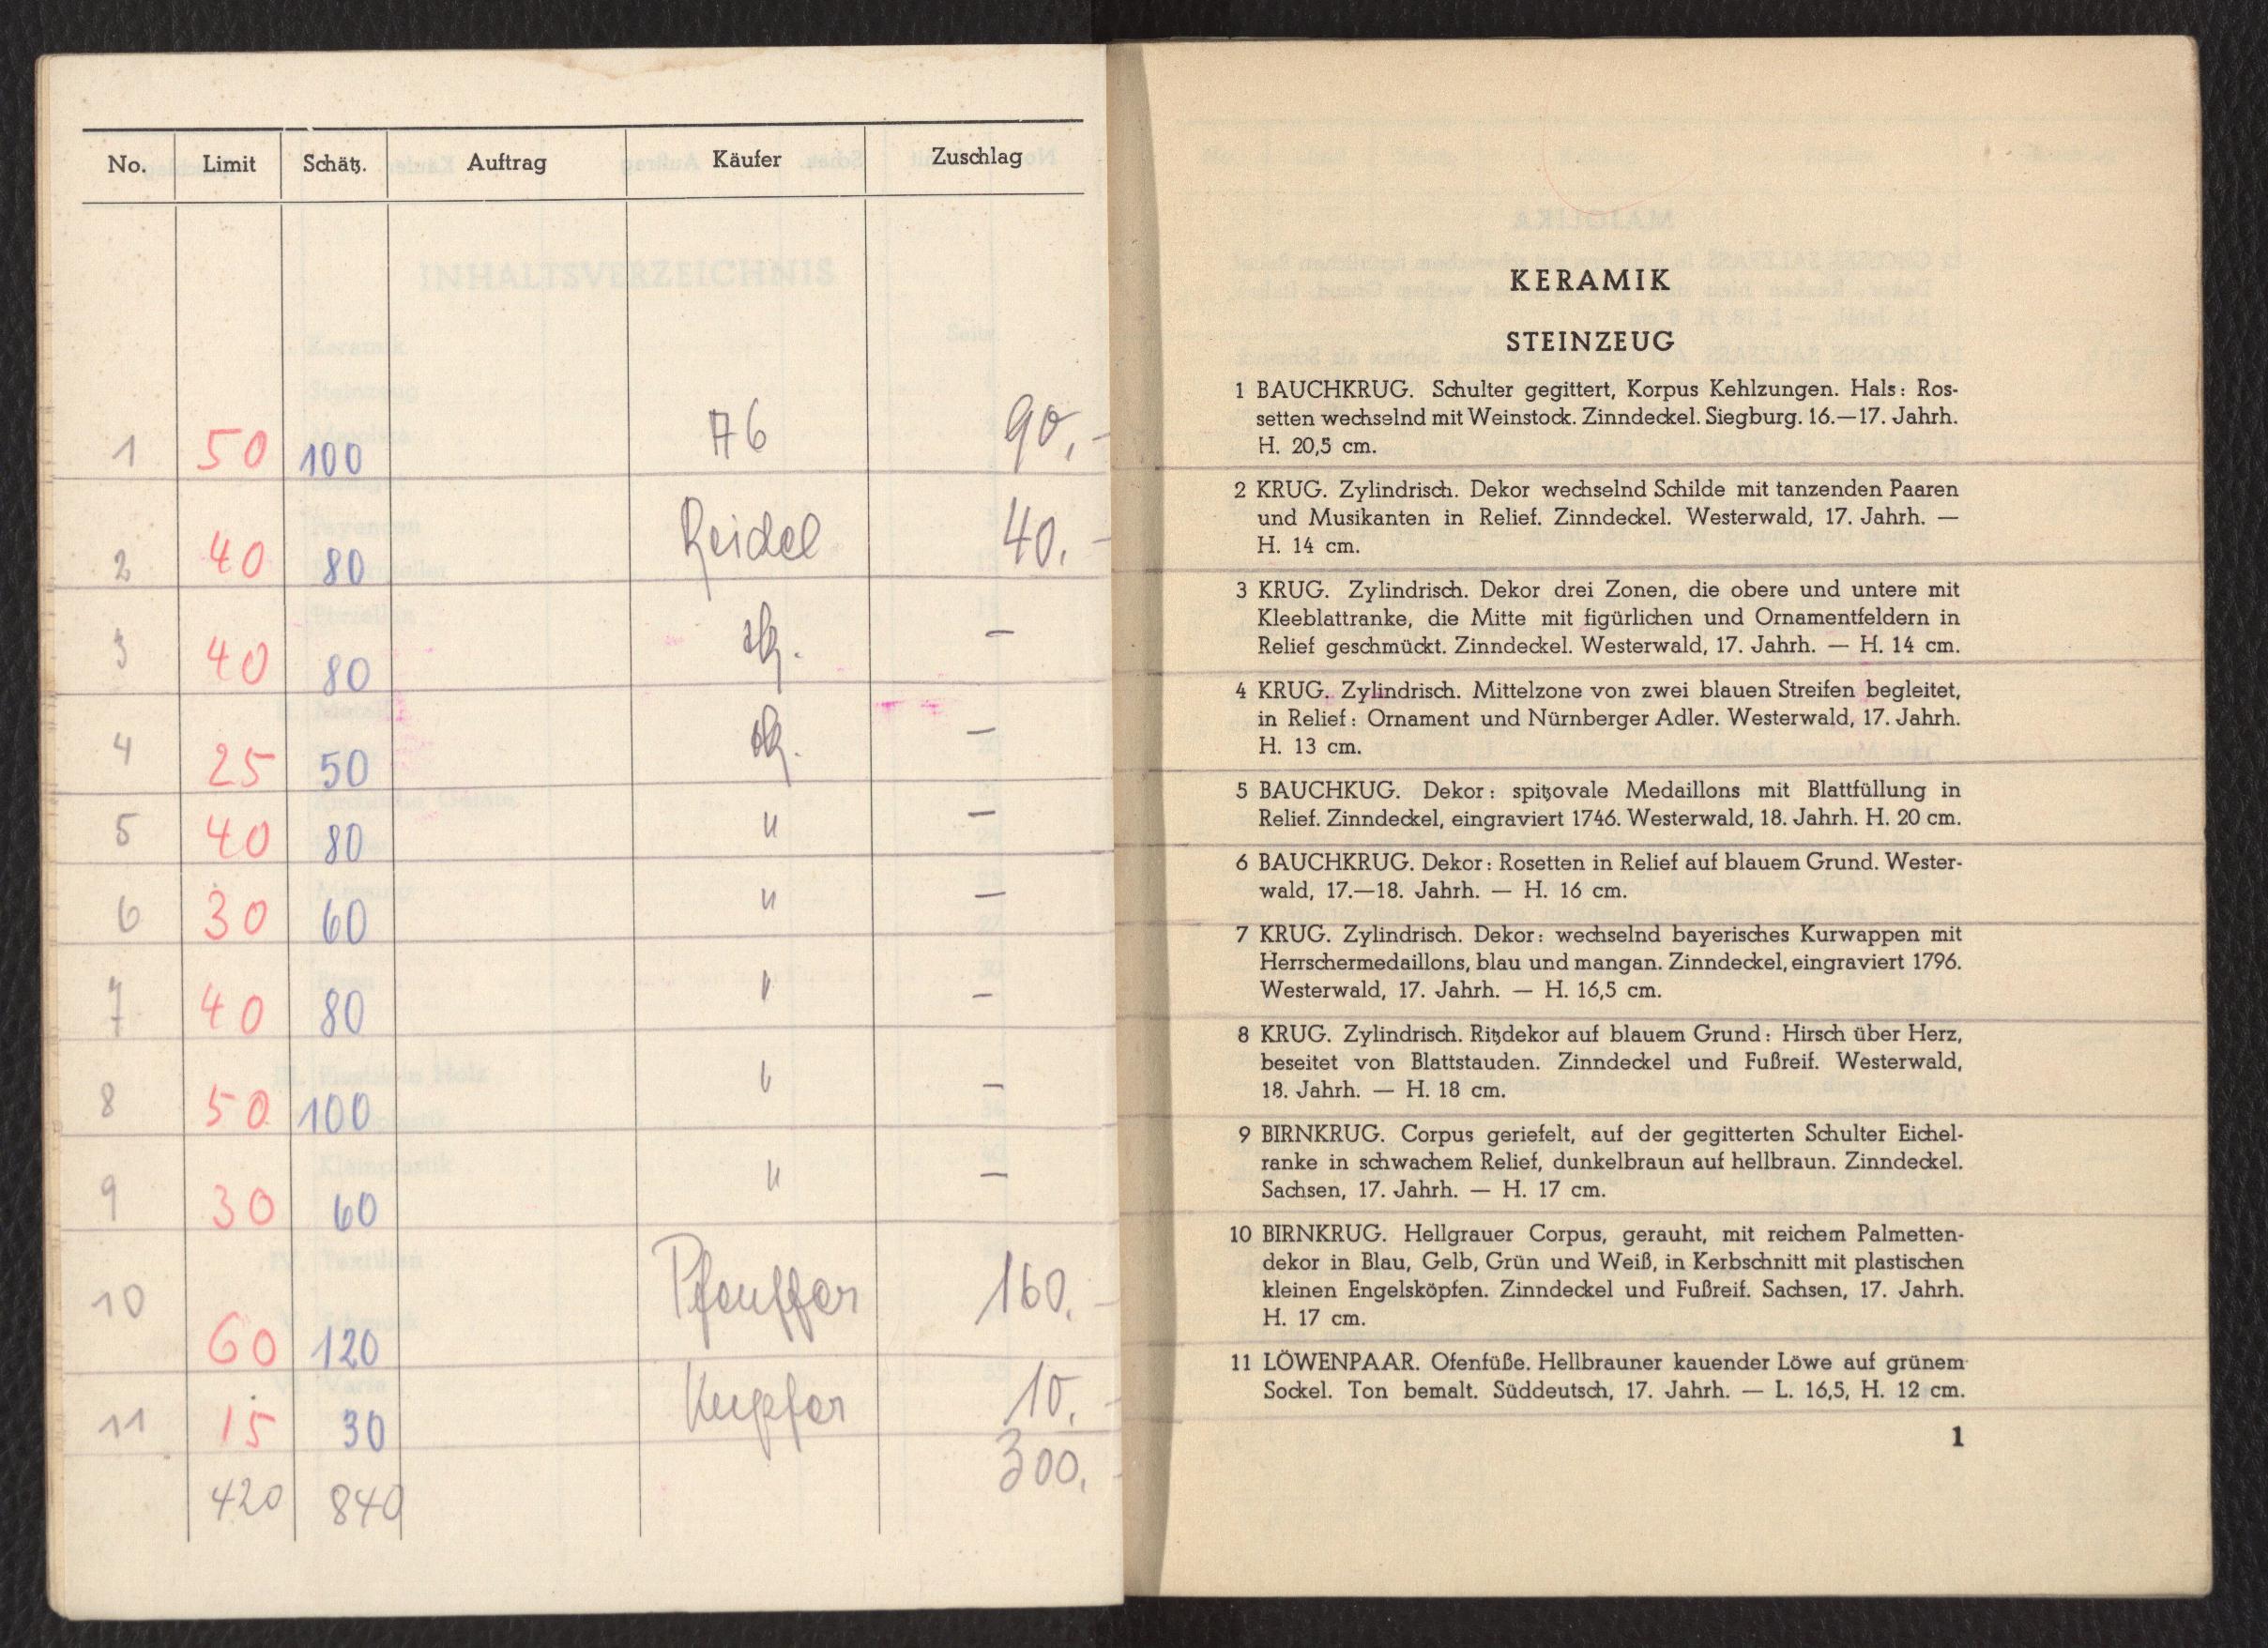 No. Limit Schätz. Auftrag Käufer Zuschlag
1 50 100 A6 90,-
2 40 80 Reidel 40.-
3 40 80 –
4 25 50 –
5 40 80 " –
6 30 60 " –
7 40 80 " –
8 50 100 " –
9 30 60 " –
10 60 120 Pfeuffer 160.-
11 15 30 10.-
420 840 300.-
KERAMIK
STEINZEUG
1 BAUCHKRUG. Schulter gegittert, Korpus Kehlzungen. Hals: Ros-
setten wechselnd mit Weinstock. Zinndeckel. Siegburg. 16.—17. Jahrh.
H. 20,5 cm.
2 KRUG. Zylindrisch. Dekor wechselnd Schilde mit tanzenden Paaren
und Musikanten in Relief. Zinndeckel. Westerwald, 17. Jahrh. —
H. 14 cm.
3 KRUG. Zylindrisch. Dekor drei Zonen, die obere und untere mit
Kleeblattranke, die Mitte mit figürlichen und Ornamentfeldern in
Relief geschmückt. Zinndeckel. Westerwald, 17. Jahrh. — H. 14 cm.
4 KRUG. Zylindrisch. Mittelzone von zwei blauen Streifen begleitet,
in Relief: Ornament und Nürnberger Adler. Westerwald, 17. Jahrh.
H. 13 cm.
5 BAUCHKUG. Dekor: spitzovale Medaillons mit Blattfüllung in
Relief. Zinndeckel, eingraviert 1746. Westerwald, 18. Jahrh. H. 20 cm.
6 BAUCHKRUG. Dekor: Rosetten in Relief auf blauem Grund. Wester-
wald, 17.—18. Jahrh. — H. 16 cm.
7 KRUG. Zylindrisch. Dekor: wechselnd bayerisches Kurwappen mit
Herrschermedaillons, blau und mangan. Zinndeckel, eingraviert 1796.
Westerwald, 17. Jahrh. — H. 16,5 cm.
8 KRUG. Zylindrisch. Ritzdekor auf blauem Grund: Hirsch über Herz,
beseitet von Blattstauden. Zinndeckel und Fußreif. Westerwald,
18. Jahrh. — H. 18 cm.
9 BIRNKRUG. Corpus geriefelt, auf der gegitterten Schulter Eichel-
ranke in schwachem Relief, dunkelbraun auf hellbraun. Zinndeckel.
Sachsen, 17. Jahrh. — H. 17 cm.
10 BIRNKRUG. Hellgrauer Corpus, gerauht, mit reichem Palmetten-
dekor in Blau, Gelb, Grün und Weiß, in Kerbschnitt mit plastischen
kleinen Engelsköpfen. Zinndeckel und Fußreif. Sachsen, 17. Jahrh.
H. 17 cm.
11 LÖWENPAAR. Ofenfüße. Hellbrauner kauender Löwe auf grünem
Sockel. Ton bemalt. Süddeutsch, 17. Jahrh. — L. 16,5, H. 12 cm.
1